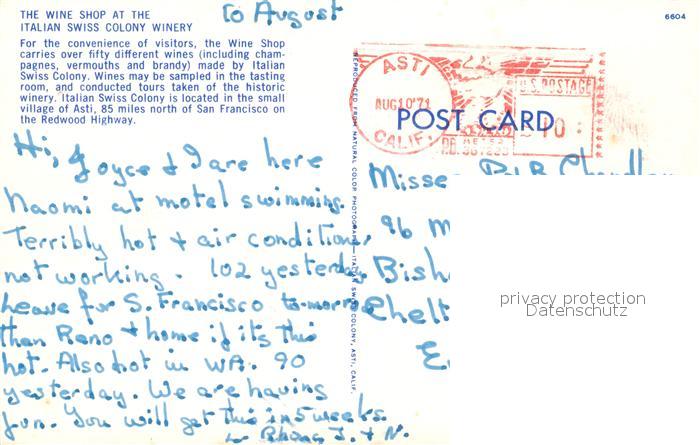 THE WINE SHOP AT THE
ITALIAN SWISS COLONY WINERY
For the convenience of visitors, the Wine Shop
carries over fifty different wines (including cham-
pagnes, vermouths and brandy) made by Italian
Swiss Colony. Wines may be sampled in the tasting
room, and conducted tours taken of the historic
winery. Italian Swiss Colony is located in the small
village of Asti, 85 miles north of San Francisco on
the Redwood Highway.
to August
6604
Hi, Joyce & I are here
Naomi at motel swimming.
Terribly hot & air condition
not working. 102 yesterday
Leave for S. Francisco to-morrow
then Reno & home if its this
hot. Also hot in WA. 90
yesterday. We are having
fun. You will get this in 5 weeks.
J. & N.
REPRODUCED FROM NATURAL COLOR PHOTOGRAPH—ITALIAN SWISS COLONY, ASTI, CALIF.
ASTI
AUG10'71
CALIF.
U.S. POSTAGE
10
P.B. METER
POST CARD
Misses P. & B. Chandler
96 M
Bish
Chelt
E
privacy protection
Datenschutz